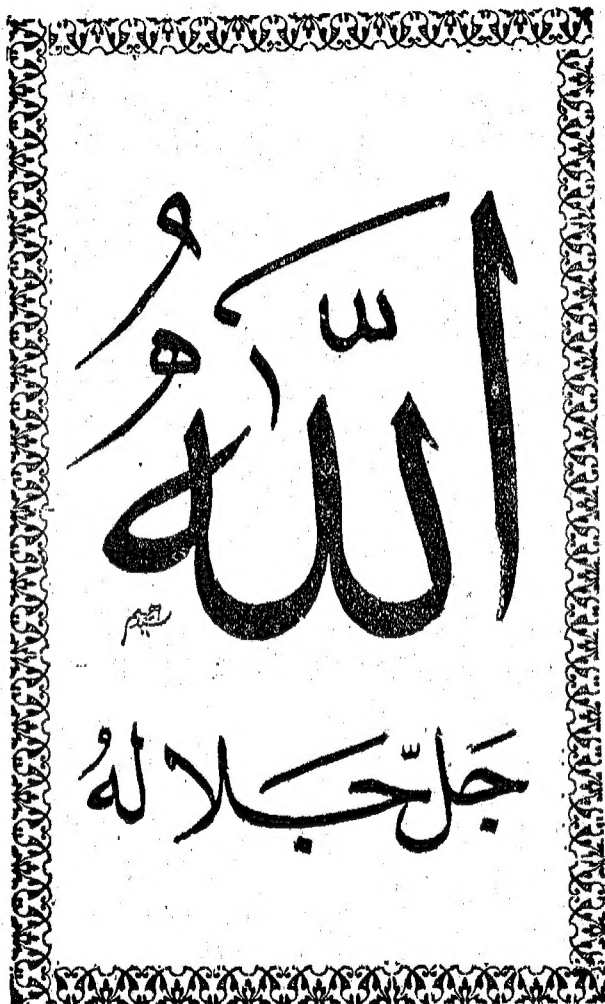 اللّٰهُ
جَلَّ جَلَالَهُ